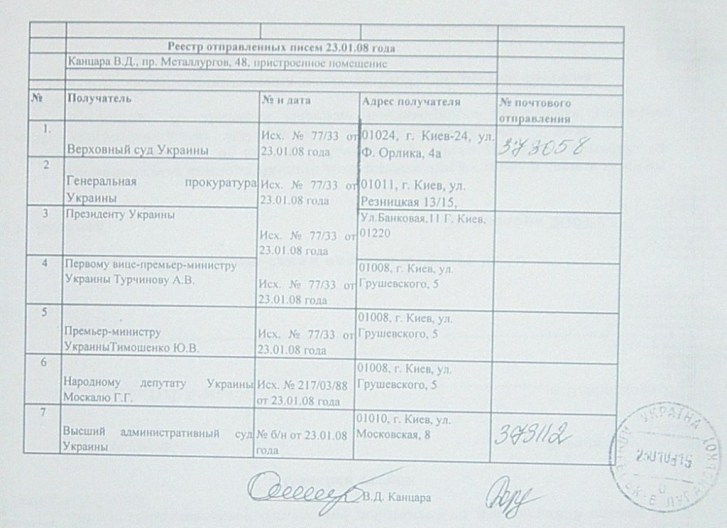 Реестр отправленных писем 23.01.08 года
Канцара В.Д., пр. Металлургов, 48, пристроенное помещение
№ Получатель № и дата Адрес получателя № почтового отправления
1. Верховный суд Украины Исх. № 77/33 от 23.01.08 года 01024, г. Киев-24, ул. Ф. Орлика, 4а 373058
2 Генеральная прокуратура Украины Исх. № 77/33 от 23.01.08 года 01011, г. Киев, ул. Резницкая 13/15,
3 Президенту Украины Исх. № 77/33 от 23.01.08 года Ул.Банковая,11 Г. Киев, 01220
4 Первому вице-премьер-министру Украины Турчинову А.В. Исх. № 77/33 от 23.01.08 года 01008, г. Киев, ул. Грушевского, 5
5 Премьер-министру УкраиныТимошенко Ю.В. Исх. № 77/33 от 23.01.08 года 01008, г. Киев, ул. Грушевского, 5
6 Народному депутату Украины Москалю Г.Г. Исх. № 217/03/88 от 23.01.08 года 01008, г. Киев, ул. Грушевского, 5
7 Высший административный суд Украины № б/н от 23.01.08 года 01010, г. Киев, ул. Московская, 8 373112
УКРАЇНА
В.Д. Канцара